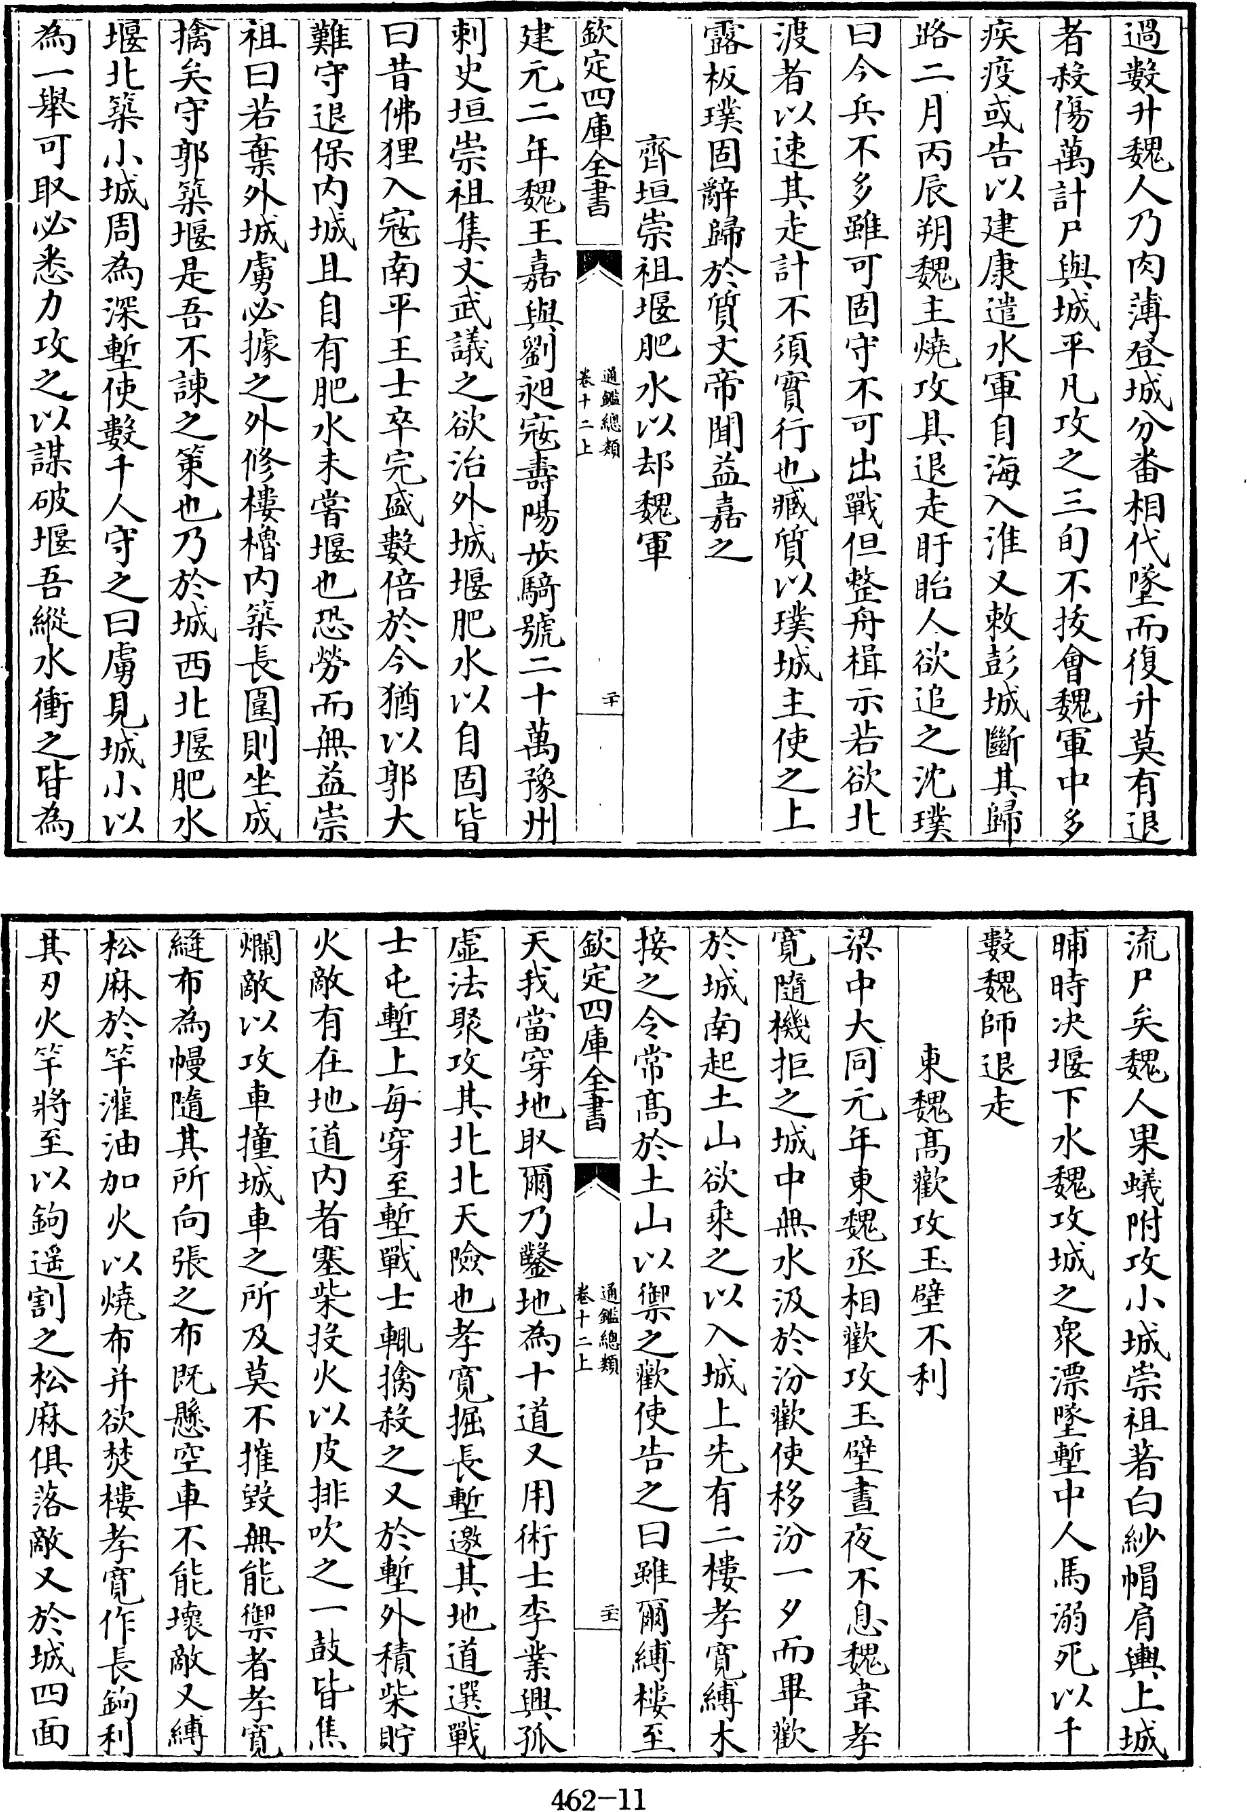 過數升魏人乃肉薄登城分番相代墜而復升莫有退
者殺傷萬計尸與城平凡攻之三旬不㧞會魏軍中多
疾疫或告以建康遣水軍自海入淮又敕彭城斷其歸
路二月丙辰朔魏主燒攻具退走盱眙人欲追之沈璞
曰今兵不多雖可固守不可出戰但整舟楫示若欲北
渡者以速其走計不須實行也臧質以璞城主使之上
露板璞固辭歸於質文帝聞益嘉之
齊垣崇祖堰肥水以却魏軍
欽定四庫全書
通鑑總類
卷十二上
二十
建元二年魏王嘉與劉昶宼壽陽步騎號二十萬豫州
刺史垣崇祖集文武議之欲治外城堰肥水以自固皆
曰昔佛狸入宼南平王士卒完盛數倍於今猶以郭大
難守退保内城且自有肥水未嘗堰也恐勞而無益崇
祖曰若棄外城虜必據之外修樓櫓内築長圍則坐成
擒矣守郭築堰是吾不諫之策也乃於城西北堰肥水
堰北築小城周為深塹使數千人守之曰虜見城小以
為一舉可取必悉力攻之以謀破堰吾縱水衝之皆為
流尸矣魏人果蟻附攻小城崇祖著白紗帽肩輿上城
晡時决堰下水魏攻城之衆漂墜塹中人馬溺死以千
數魏師退走
東魏髙歡攻玉壁不利
梁中大同元年東魏丞相歡攻玉壁晝夜不息魏韋孝
寛隨機拒之城中無水汲於汾歡使移汾一夕而畢歡
於城南起土山欲乘之以入城上先有二樓孝寛縛木
接之令常髙於土山以禦之歡使告之曰雖爾縛樓至
欽定四庫全書
通鑑總類
卷十二上
二十一
天我當穿地取爾乃鑿地為十道又用術士李業興孤
虛法聚攻其北北天險也孝寛掘長塹邀其地道選戰
士屯塹上每穿至塹戰士輒擒殺之又於塹外積柴貯
火敵有在地道内者塞柴投火以皮排吹之一鼓皆焦
爛敵以攻車撞城車之所及莫不摧毀無能禦者孝寛
縫布為幔隨其所向張之布既懸空車不能壞敵又縛
松麻於竿灌油加火以燒布并欲焚樓孝寛作長鉤利
其刃火竿將至以鉤遥割之松麻俱落敵又於城四面
462-11